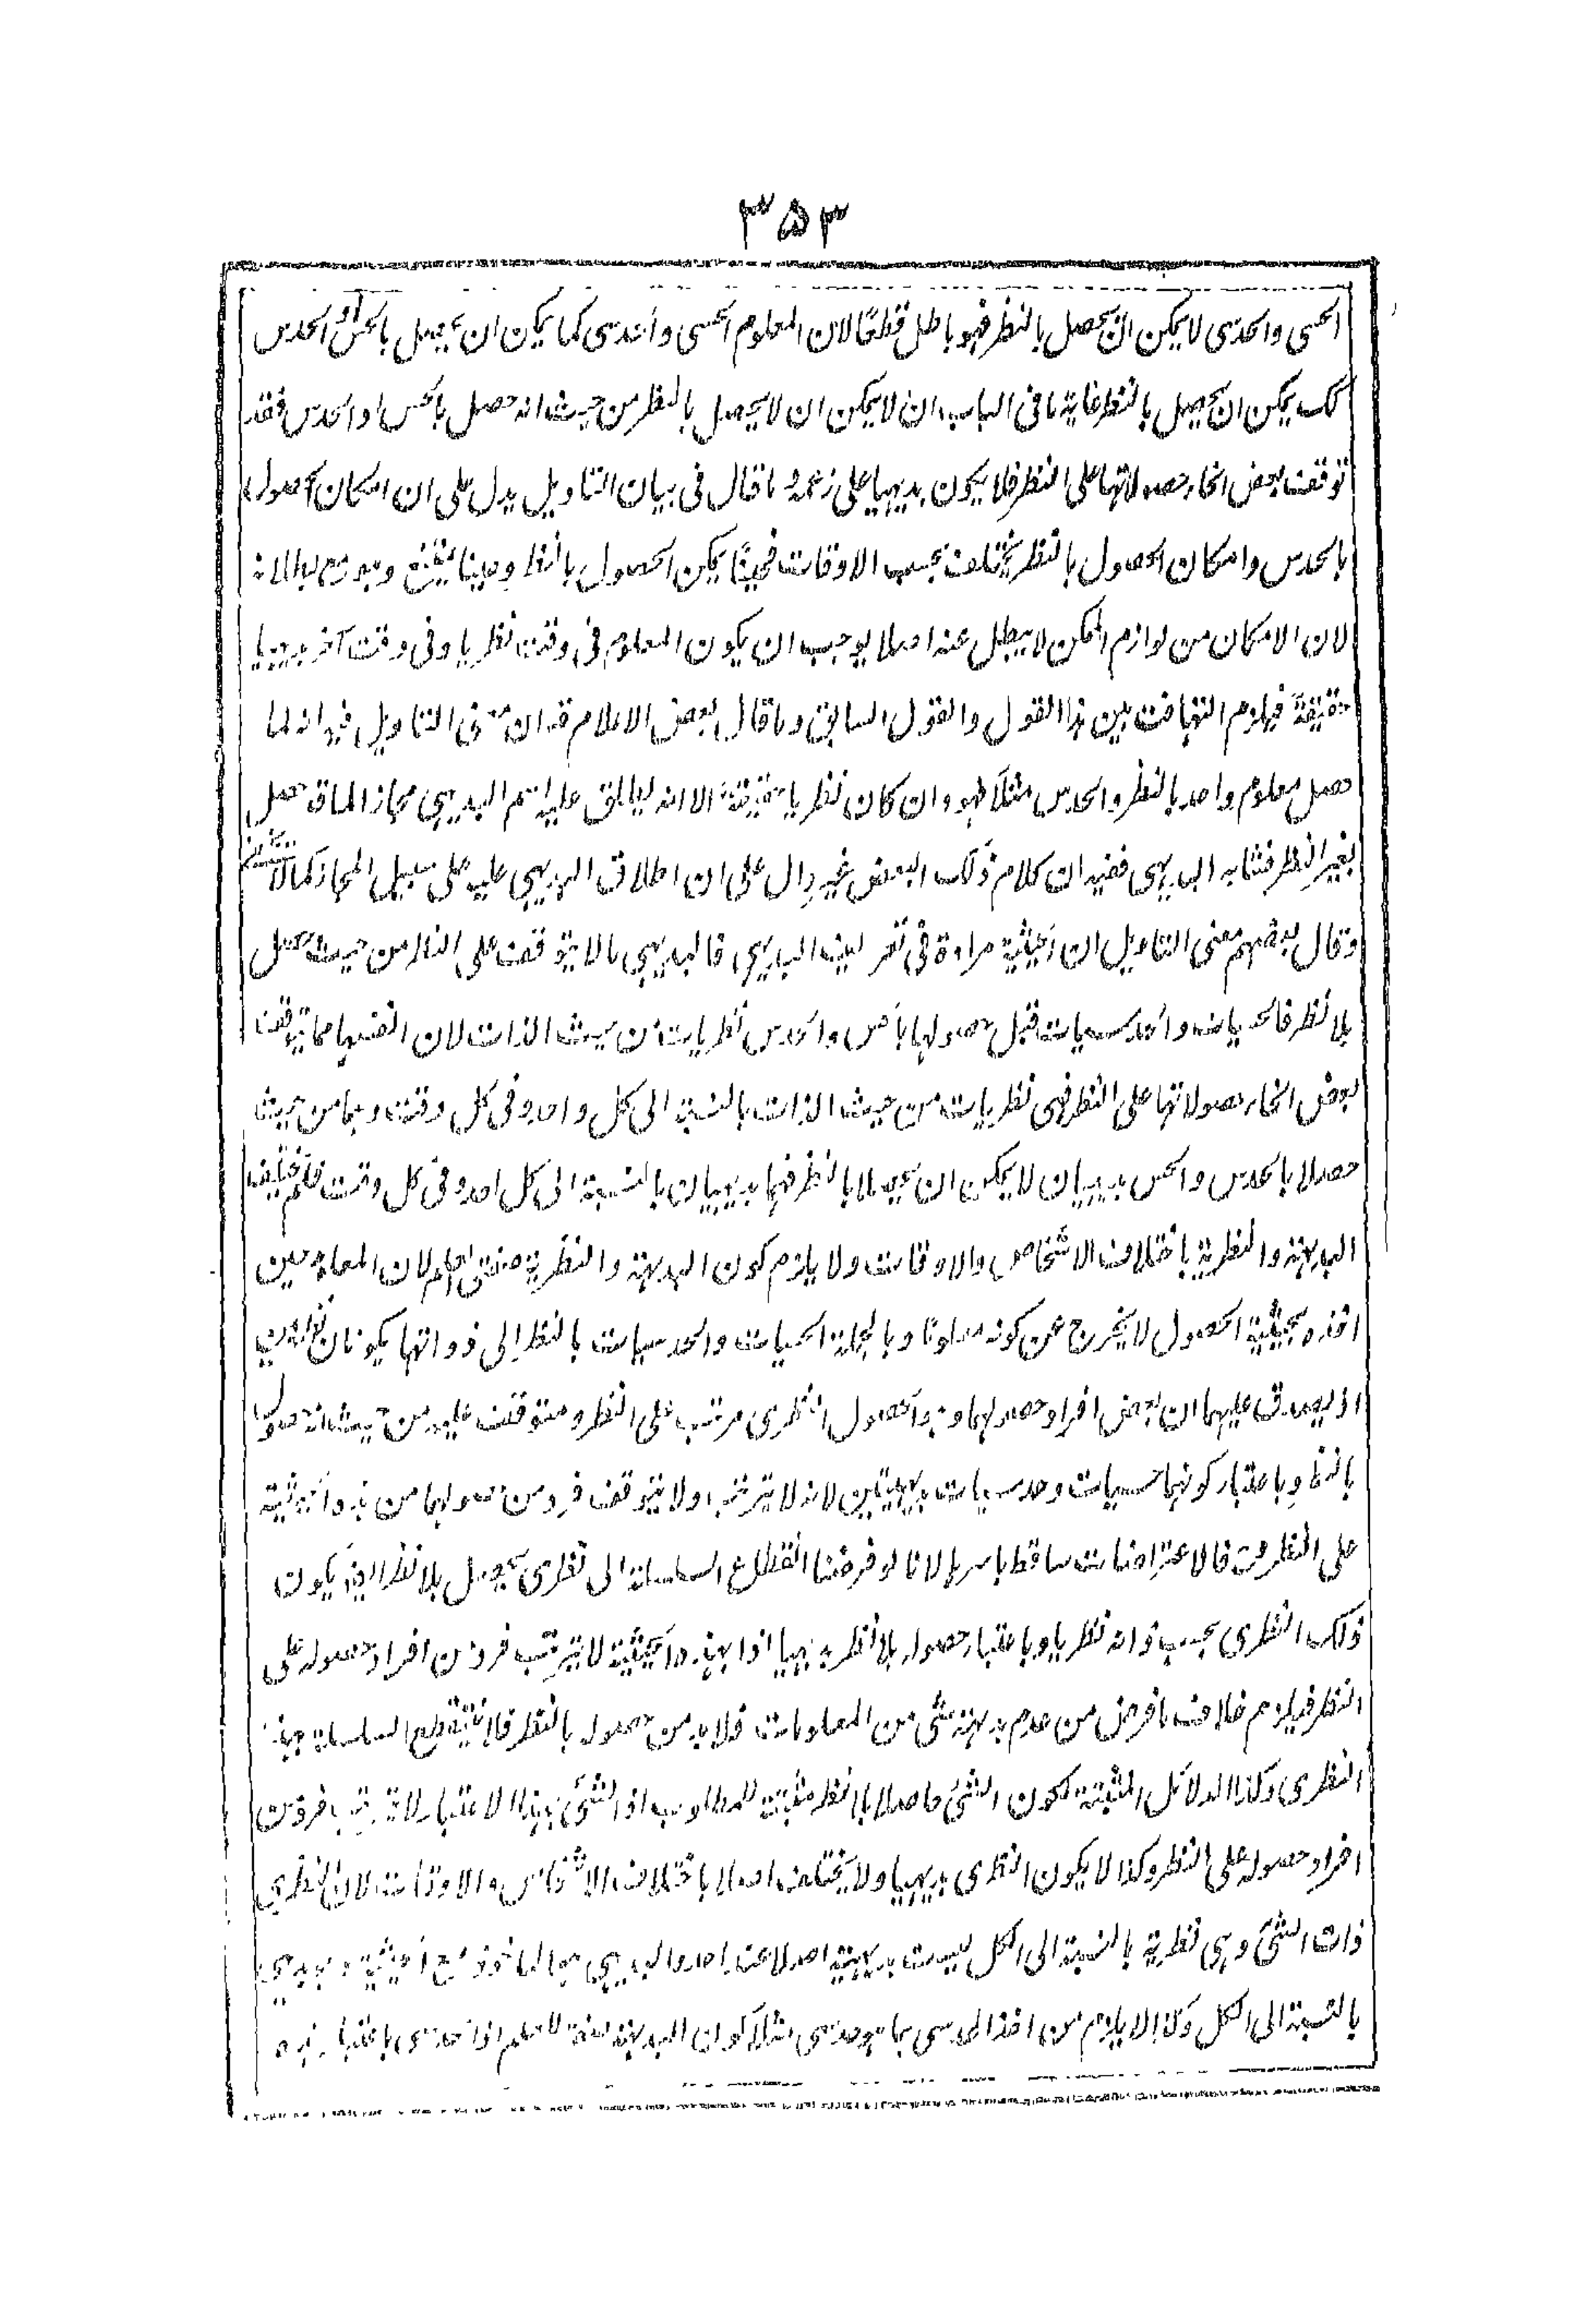 ٣٥٣
الحسی والحدسی لا یمکن ان یحصل بالنظر فهو باطل قطعًا لان المعلوم الحسی والحدسی کما یمکن ان یحصل بالحس او الحدس
کک یمکن ان یحصل بالنظر غایة ما فی الباب ان لا یمکن ان لا یحصل بالنظر من حیث انه حصل بالحس او الحدس فقد
توقف بعض انحاء حصولاتها علی النظر فلا یکون بدیهیا علی زعمه و ما قال فی بیان التاویل یدل علی ان امکان الحصول
بالحدس وامکان الحصول بالنظر یختلف بحسب الاوقات فحینًا یمکن الحصول بالنظر وحینا یمتنع
لان الامکان من لوازم الممکن لا یبطل عنه اصلا یوجب ان یکون المعلوم فی وقت نظریا وفی وقت آخر بدیهیا
حقیقةً فیلزم التهافت بین هذا القول والقول السابق وما قال بعض الاعلام قد ان معنی التاویل فیه انه لما
حصل معلوم واحد بالنظر والحدس مثلًا فهو وان کان نظریا حقیقة الا انه یطلق علیه اسم البدیهی مجازا لما قد حصل
بغیر النظر فشابه البدیهی ففیه ان کلام ذلک البعض غیر دال علی ان اطلاق البدیهی علیه علی سبیل المجاز کما لا یخفی
وقال بعضهم معنی التاویل ان الحیثیة مرادة فی تعریف البدیهی فالبدیهی ما لا یتوقف علی النظر من حیث حصل
بلا نظر فالحسیات والحدسیات قبل حصولها بالحس والحدس نظریات من حیث الذات لان انفسها مما یتوقف
بعض انحاء حصولاتها علی النظر فهی نظریات من حیث الذات بالنسبة الی کل واحد وفی کل وقت وهما من حیث
حصلا بالحدس والحس بدیهیان لا یمکن ان یحصلا بالنظر فهما بدیهیان بالنسبة الی کل احد وفی کل وقت فلم یختلف
البدیهة والنظریة باختلاف الاشخاص والاوقات ولا یلزم کون البدیهة والنظریة صفتی العلم لان المعلوم حین
اخذه بحیثیة الحصول لا یخرج عن کونه معلومًا وبالجملة الحسیات والحدسیات بالنظر الی ذواتها یکونان نظریین
اذ یصدق علیهما ان بعض افراد حصولهما وهو الحصول النظری مرتب علی النظر ومتوقف علیه من حیث انه حصول
بالنظر وباعتبار کونهما حسیات وحدسیات بدیهیتین لانه لا یترتب ولا یتوقف فرد من حصولهما من هذه الحیثیة
علی النظر فح فالاعتراضات ساقط باسرها لانا لو فرضنا انقطاع السلسلة الی نظری یحصل بلا نظر یکون
ذلک النظری بحسب ذاته نظریا وباعتبار حصوله بلا نظر بدیهیا اذا بهذه الحیثیة لا یترتب فرد من افراد حصوله علی
النظر فیلزم خلاف ما فرض من عدم بدیهة شی من المعلومات فلا بد من حصوله بالنظر فلا تنقطع السلسلة
النظری وکذا الدلائل المثبتة لکون الشئ حاصلا بلا نظر مثبتة للمطلوب اذ الشئ بهذا الاعتبار لا یترتب فرد من
افراد حصوله علی النظر وکذا لا یکون النظری بدیهیا ولا یختلف اصلا باختلاف الاشخاص والاوقات لان النظری
ذات الشئ وهی نظریة بالنسبة الی الکل لیست بدیهیة اصلا عند احد والبدیهی هو الماخوذ مع الحیثیة وهو بدیهی
بالنسبة الی الکل وکذا لا یلزم من اخذ الحدسی بما هو حدسی مثلًا کون البدیهة صفة للعلم اذ الحدسی باعتبار